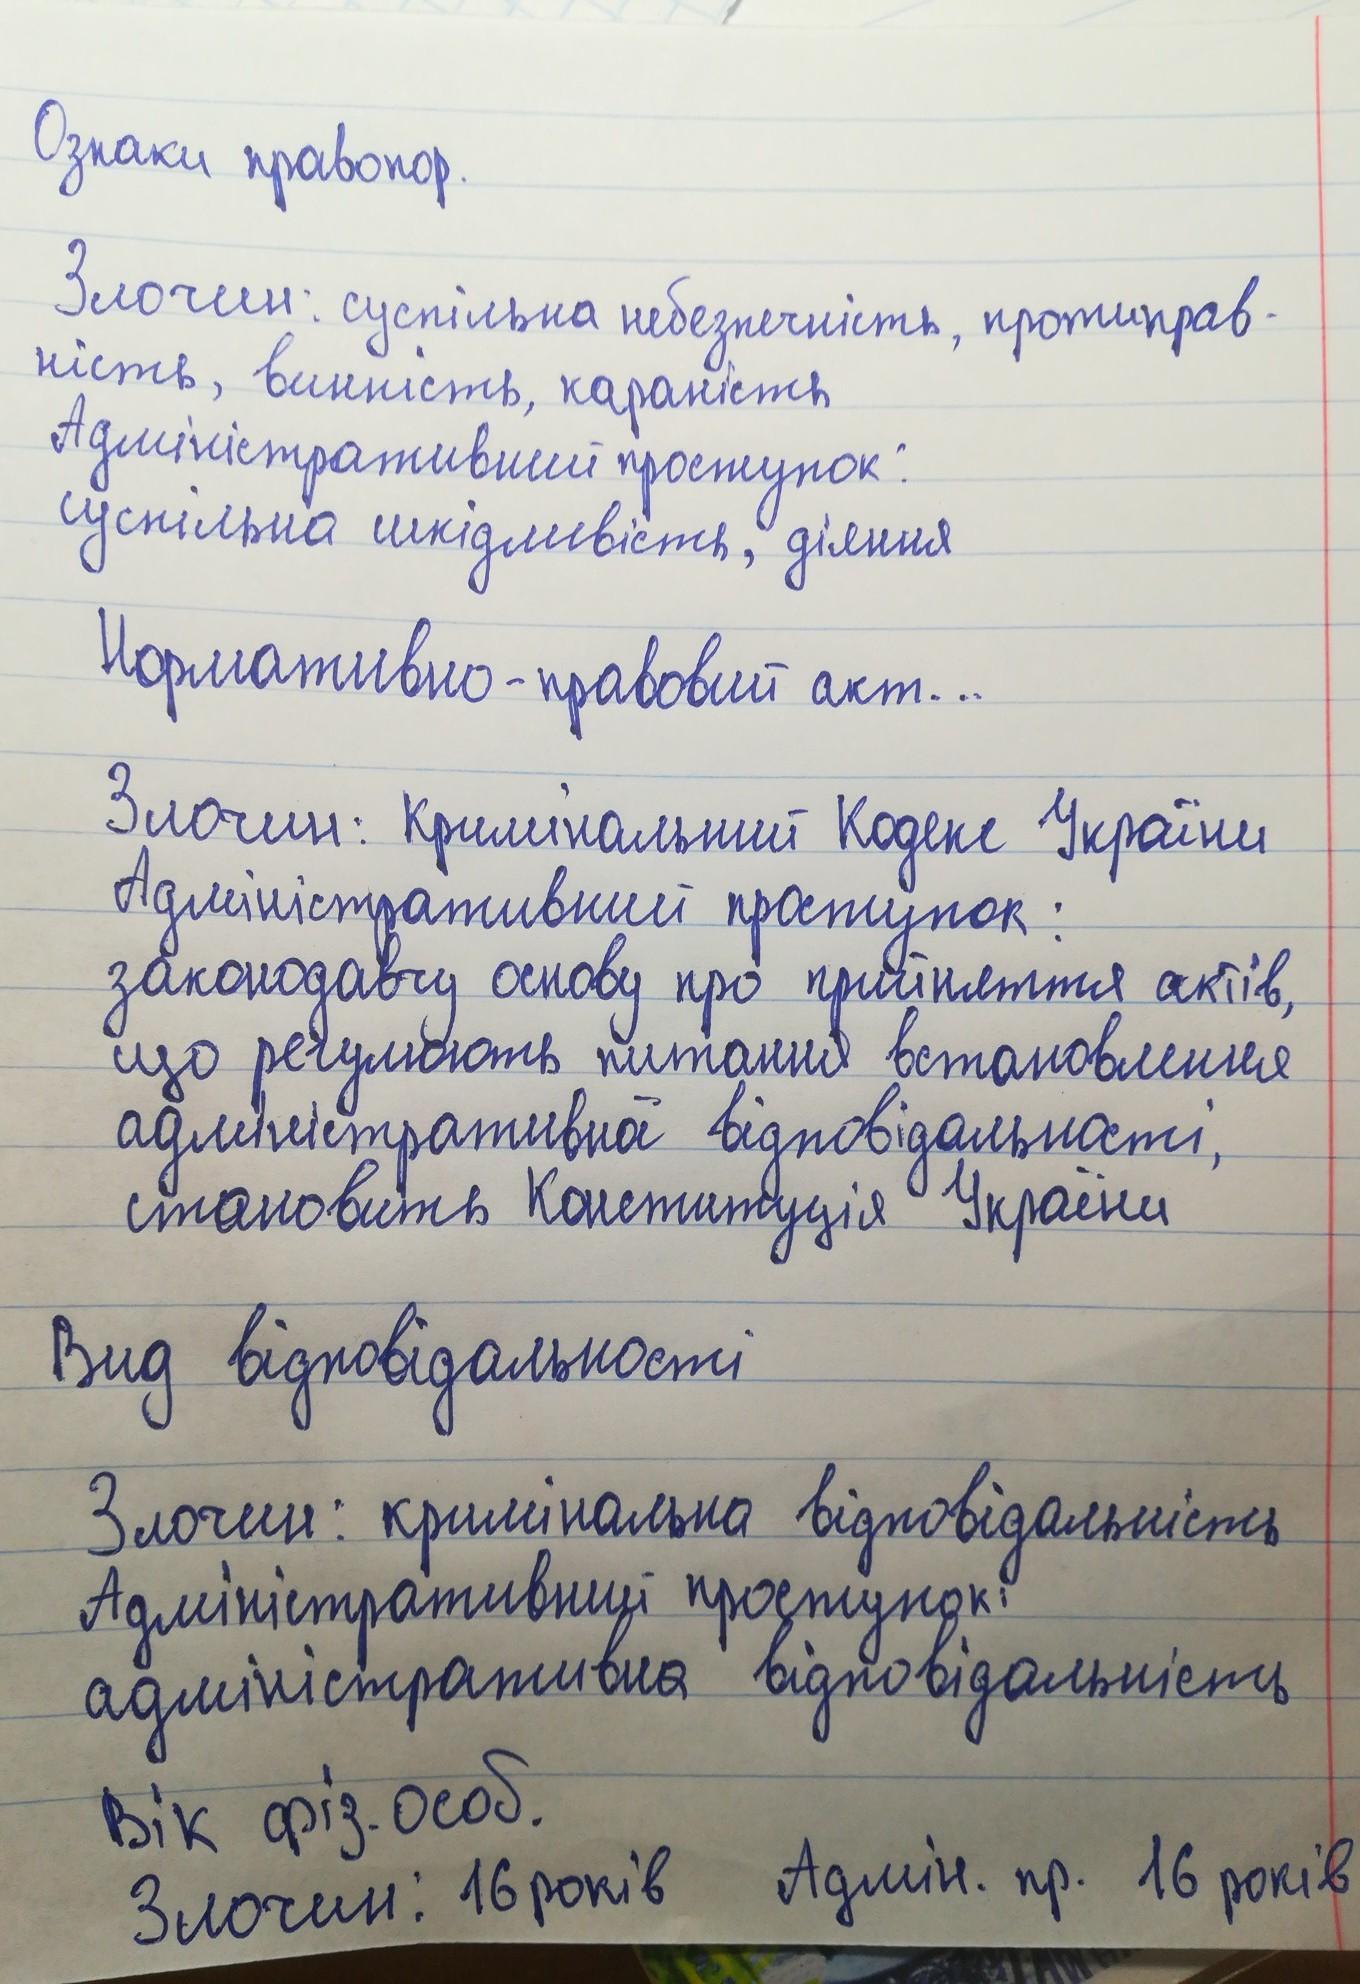 Ознаки правопор.
Злочин: суспільна небезпечність, протиправ-
ність, винність, караність
Адміністративний проступок:
суспільна шкідливість, діяння
Нормативно-правовий акт...
Злочин: Кримінальний Кодекс України
Адміністративний проступок:
законодавчу основу про прийняття актів,
що регулюють питання встановлення
адміністративної відповідальності,
становить Конституція України
Вид відповідальності
Злочин: кримінальна відповідальність
Адміністративний проступок:
адміністративна відповідальність
Вік фіз. особ.
Злочин: 16 років Адмін. пр. 16 років